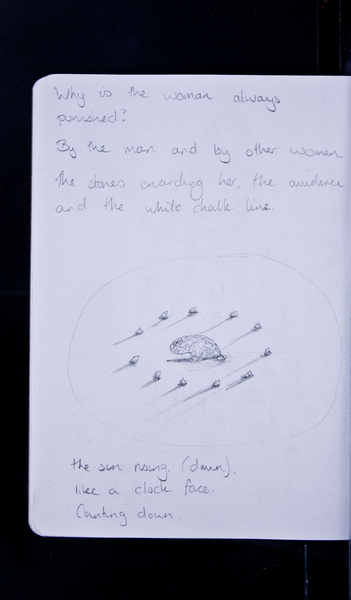 Why is the woman always
punished?
By the man and by other women.
The stones encircling her, the audience
and the white chalk line.
the sun rising. (dawn).
like a clock face.
Counting down.